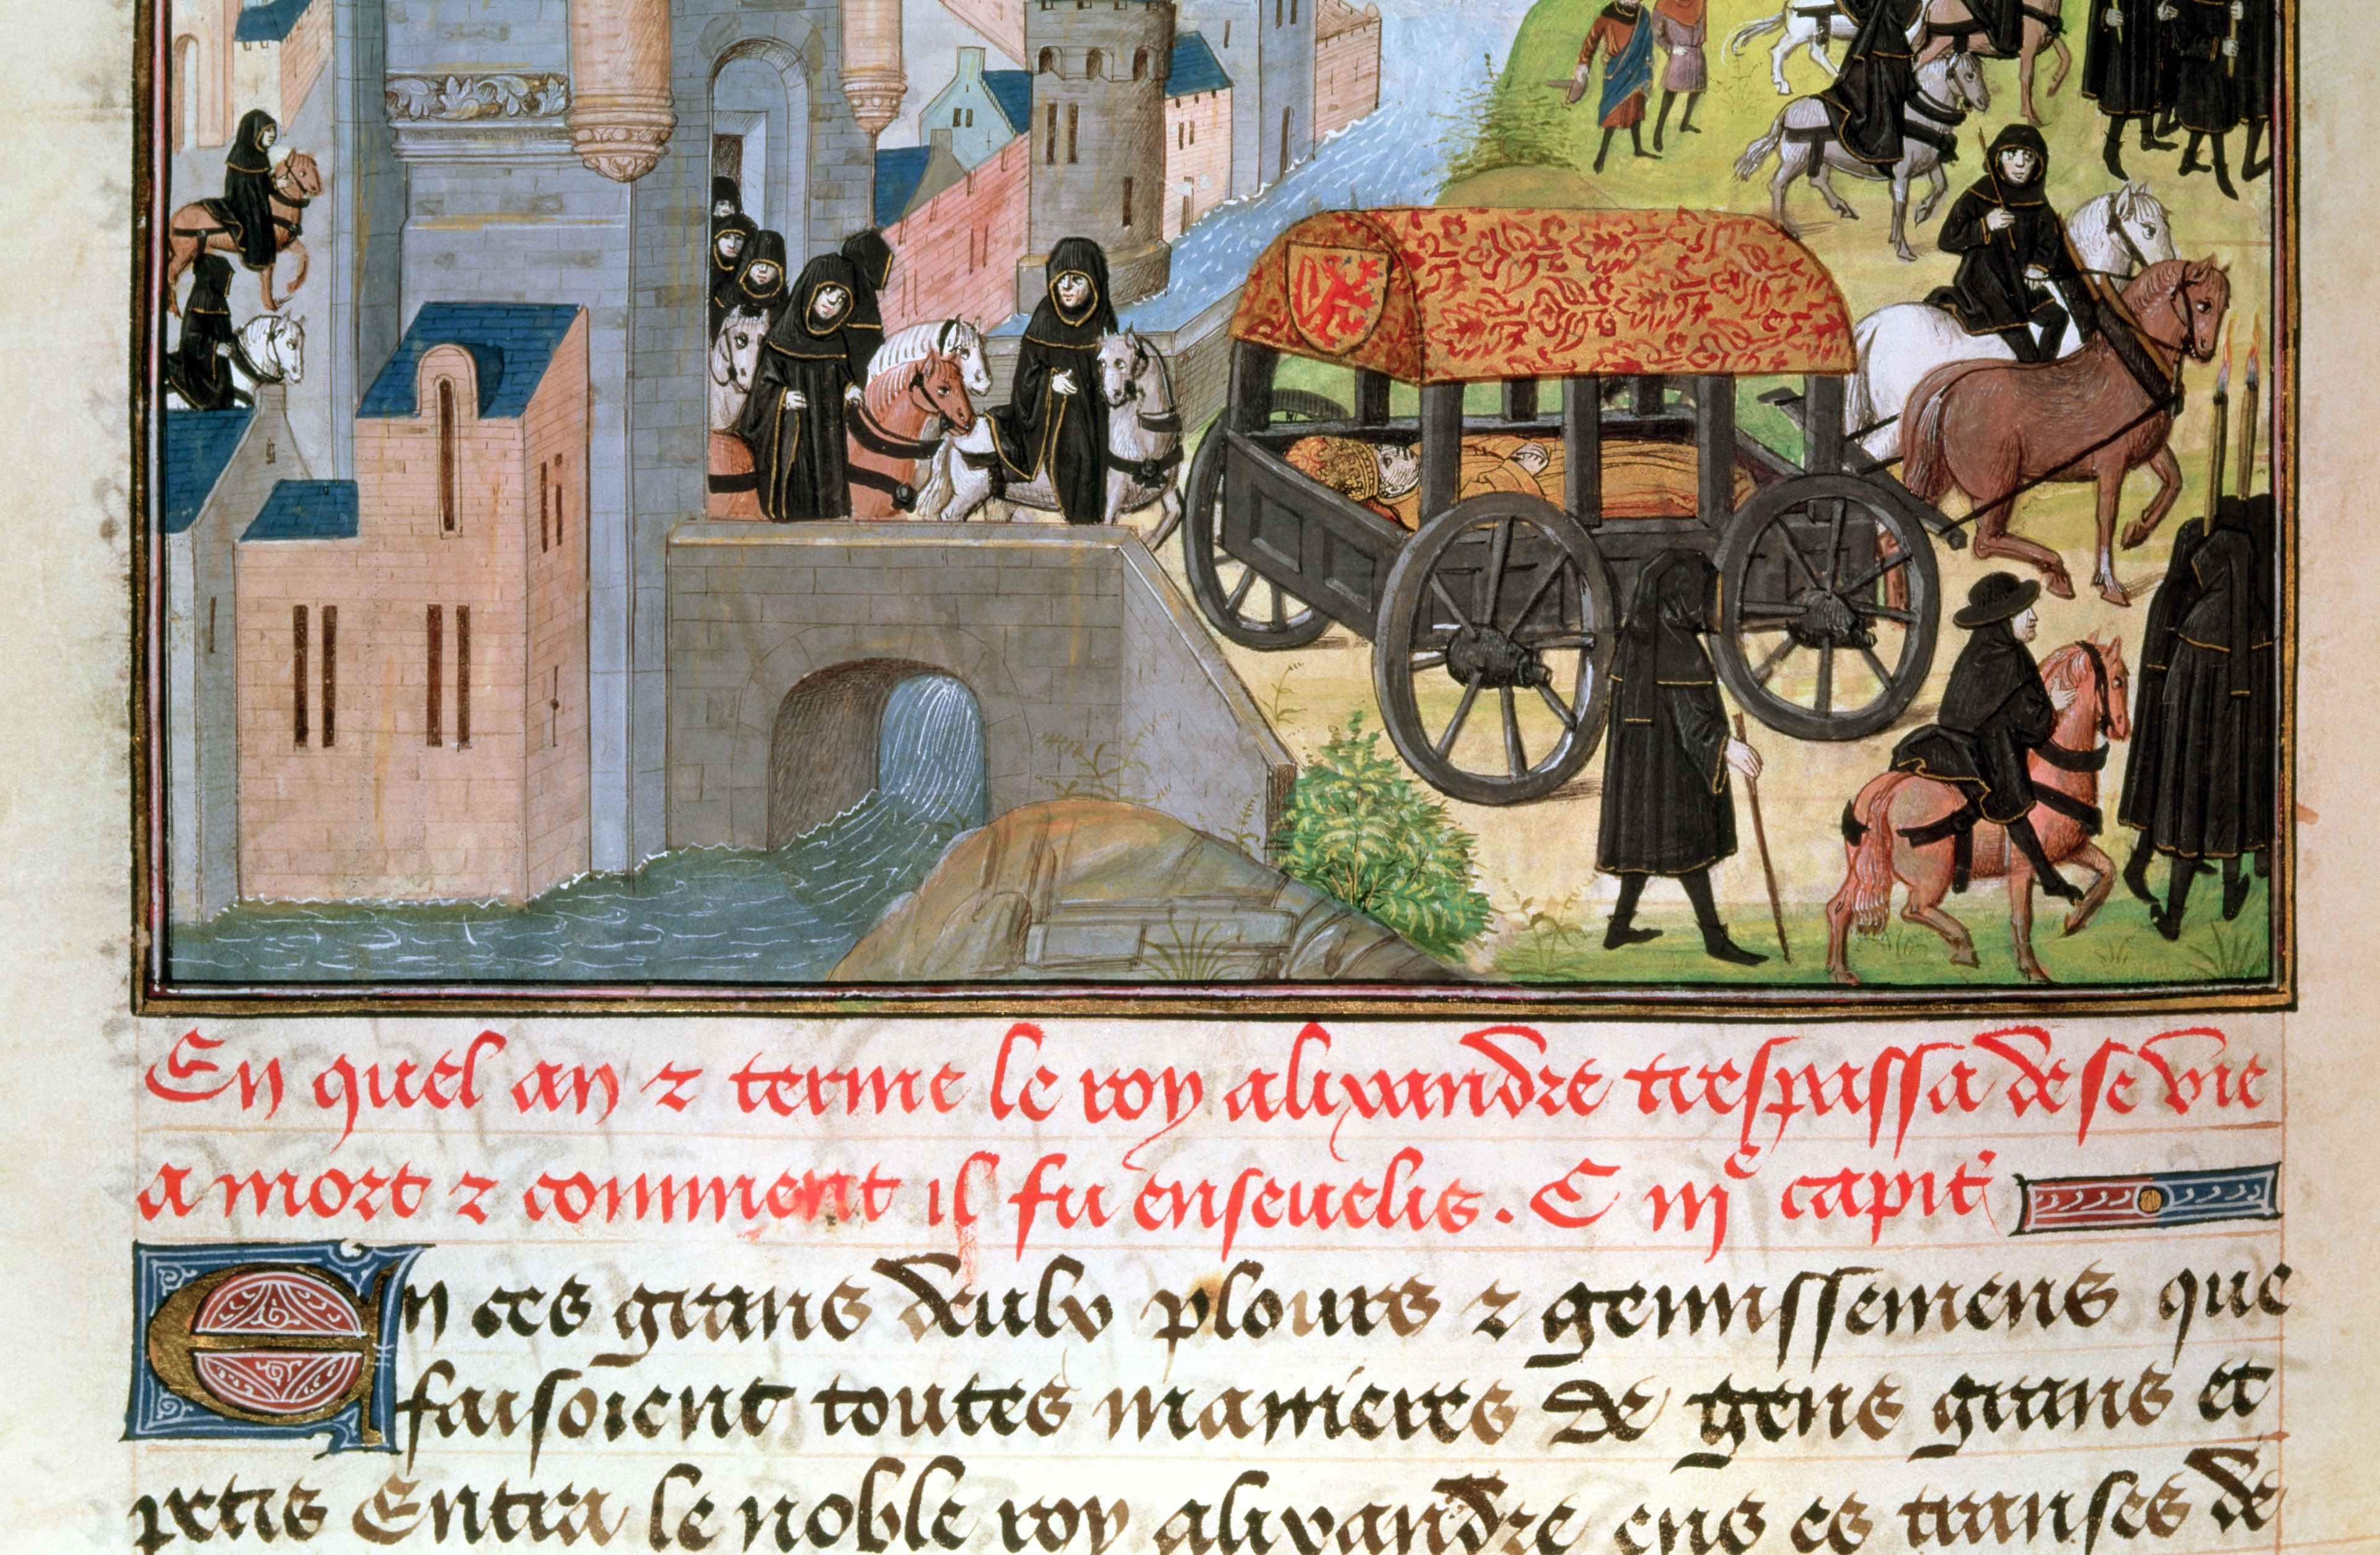 En quel an ⁊ terme le roy alixandre trespassa de se vie
a mort ⁊ comment il fu enseuelis. C iijᵉ capitᵉ
En ces grans deulx plours ⁊ gemissemens que
faisoient toutes manieres de gens grans et
petis Entra le noble roy alixandre ens es transes de